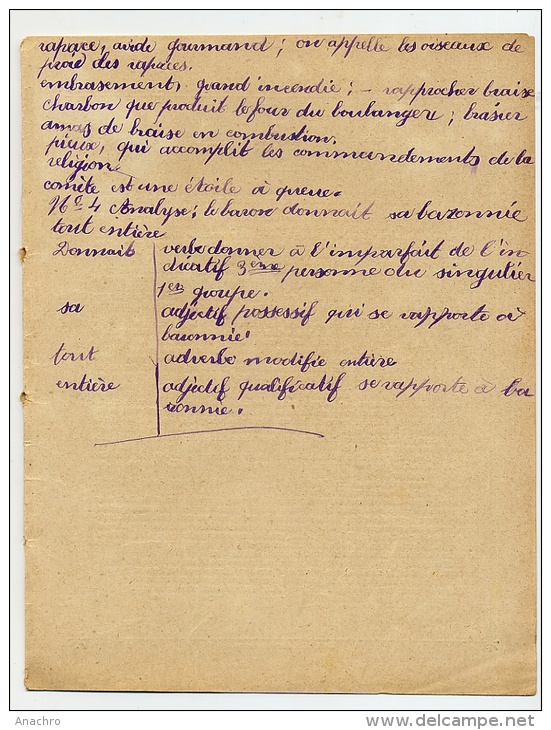 rapace, avide gourmand ; on appelle les oiseaux de
proie des rapaces.
embrasement, grand incendie ; – rapprocher braise
charbon que produit le four du boulanger ; brasier
amas de braise en combustion.
pieux, qui accomplit les commandements de la
religion.
comète est une étoile à queue.
Nº 4 Analyse ; le baron donnait sa baronnie
tout entière
Donnait verbe donner à l'imparfait de l'in-
dicatif 3ème personne du singulier
1er groupe.
sa adjectif possessif qui se rapporte à
baronnie.
tout adverbe modifie entière
entière adjectif qualificatif se rapporte à ba
ronnie.
Anachro
delcampe.net